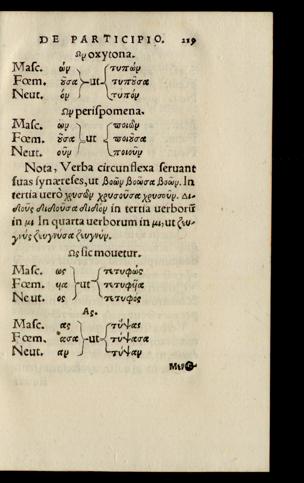 DE PARTICIPIO. 219
Ων oxytona.
Masc. ὼν τυπὼν
Fœm. οῦσα ut τυποῦσα
Neut. ὸν τυπὸν
Ων perispomena.
Masc. ῶν ποιῶν
Fœm. οῦσα ut ποιοῦσα
Neut. οῦν ποιοῦν
Nota, Verba circunflexa seruant
suas synæreses, ut βοῶν βοῶσα βοῶν. In
tertia uerò χρυσῶν χρυσοῦσα χρυσοῦν. Δι-
δοὺς διδοῦσα διδὸν in tertia uerborū
in μι In quarta uerborum in μι, ut ζευ-
γνὺς ζευγνῦσα ζευγνύν.
Ως sic mouetur.
Masc. ως τετυφὼς
Fœm. υῖα ut τετυφυῖα
Neut. ος τετυφὸς
Ας.
Masc. ας τύψας
Fœm. ασα ut τύψασα
Neut. αν τύψαν